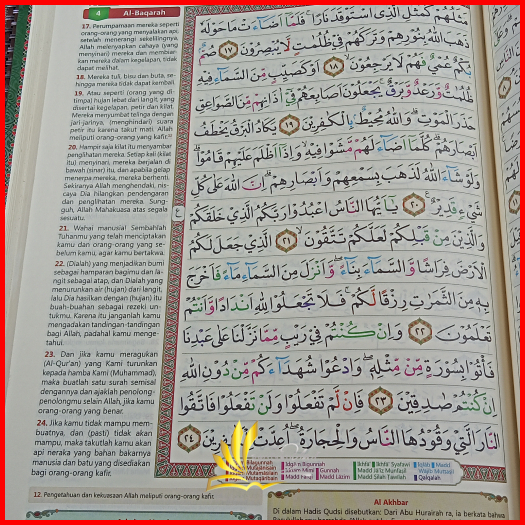 4 Al-Baqarah
17. Perumpamaan mereka seperti
orang-orang yang menyalakan api,
setelah menerangi sekelilingnya,
Allah melenyapkan cahaya (yang
menyinari) mereka dan membiar-
kan mereka dalam kegelapan, tidak
dapat melihat.
18. Mereka tuli, bisu dan buta, se-
hingga mereka tidak dapat kembali.
19. Atau seperti (orang yang di-
timpa) hujan lebat dari langit, yang
disertai kegelapan, petir dan kilat.
Mereka menyumbat telinga dengan
jari-jarinya, (menghindari) suara
petir itu karena takut mati. Allah
meliputi orang-orang yang kafir.
20. Hampir saja kilat itu menyambar
penglihatan mereka. Setiap kali (kilat
itu) menyinari, mereka berjalan di
bawah (sinar) itu, dan apabila gelap
menerpa mereka, mereka berhenti.
Sekiranya Allah menghendaki, nis-
caya Dia hilangkan pendengaran
dan penglihatan mereka. Sung-
guh, Allah Mahakuasa atas segala
sesuatu.
21. Wahai manusia! Sembahlah
Tuhanmu yang telah menciptakan
kamu dan orang-orang yang se-
belum kamu, agar kamu bertakwa.
22. (Dialah) yang menjadikan bumi
sebagai hamparan bagimu dan la-
ngit sebagai atap, dan Dialah yang
menurunkan air (hujan) dari langit,
lalu Dia hasilkan dengan (hujan) itu
buah-buahan sebagai rezeki un-
tukmu. Karena itu janganlah kamu
mengadakan tandingan-tandingan
bagi Allah, padahal kamu menge-
tahui.
23. Dan jika kamu meragukan
(Al-Qur'an) yang Kami turunkan
kepada hamba Kami (Muhammad),
maka buatlah satu surah semisal
dengannya dan ajaklah penolong-
penolongmu selain Allah, jika kamu
orang-orang yang benar.
24. Jika kamu tidak mampu mem-
buatnya, dan (pasti) tidak akan
mampu, maka takutlah kamu akan
api neraka yang bahan bakarnya
manusia dan batu yang disediakan
bagi orang-orang kafir.
مَثَلُهُمْ كَمَثَلِ الَّذِى اسْتَوْقَدَ نَارًا ۚ فَلَمَّآ اَضَاۤءَتْ مَا حَوْلَهٗ
ذَهَبَ اللّٰهُ بِنُوْرِهِمْ وَتَرَكَهُمْ فِيْ ظُلُمٰتٍ لَّا يُبْصِرُوْنَ ١٧ صُمٌّۢ
بُكْمٌ عُمْيٌ فَهُمْ لَا يَرْجِعُوْنَۙ ١٨ اَوْ كَصَيِّبٍ مِّنَ السَّمَاۤءِ فِيْهِ
ظُلُمٰتٌ وَّرَعْدٌ وَّبَرْقٌۚ يَجْعَلُوْنَ اَصَابِعَهُمْ فِيْٓ اٰذَانِهِمْ مِّنَ الصَّوَاعِقِ
حَذَرَ الْمَوْتِۗ وَاللّٰهُ مُحِيْطٌۢ بِالْكٰفِرِيْنَ ١٩ يَكَادُ الْبَرْقُ يَخْطَفُ
اَبْصَارَهُمْۗ كُلَّمَآ اَضَاۤءَ لَهُمْ مَّشَوْا فِيْهِۙ وَاِذَآ اَظْلَمَ عَلَيْهِمْ قَامُوْاۗ
وَلَوْ شَاۤءَ اللّٰهُ لَذَهَبَ بِسَمْعِهِمْ وَاَبْصَارِهِمْۗ اِنَّ اللّٰهَ عَلٰى كُلِّ
شَيْءٍ قَدِيْرٌ ٢٠ يٰٓاَيُّهَا النَّاسُ اعْبُدُوْا رَبَّكُمُ الَّذِيْ خَلَقَكُمْ
وَالَّذِيْنَ مِنْ قَبْلِكُمْ لَعَلَّكُمْ تَتَّقُوْنَۙ ٢١ الَّذِيْ جَعَلَ لَكُمُ
الْاَرْضَ فِرَاشًا وَّالسَّمَاۤءَ بِنَاۤءً ۖ وَّاَنْزَلَ مِنَ السَّمَاۤءِ مَاۤءً فَاَخْرَجَ
بِهٖ مِنَ الثَّمَرٰتِ رِزْقًا لَّكُمْ ۚ فَلَا تَجْعَلُوْا لِلّٰهِ اَنْدَادًا وَّاَنْتُمْ
تَعْلَمُوْنَ ٢٢ وَاِنْ كُنْتُمْ فِيْ رَيْبٍ مِّمَّا نَزَّلْنَا عَلٰى عَبْدِنَا
فَأْتُوْا بِسُوْرَةٍ مِّنْ مِّثْلِهٖ ۖ وَادْعُوْا شُهَدَاۤءَكُمْ مِّنْ دُوْنِ اللّٰهِ
اِنْ كُنْتُمْ صٰدِقِيْنَ ٢٣ فَاِنْ لَّمْ تَفْعَلُوْا وَلَنْ تَفْعَلُوْا فَاتَّقُوا
النَّارَ الَّتِيْ وَقُوْدُهَا النَّاسُ وَالْحِجَارَةُ ۖ اُعِدَّتْ ٢٤
ع
Idgam Bigunnah
Ikhfa' Ikhfa' Syafawi
Iqlab Mad Wajib Muttasil
Gunnah
Mad Ja'iz Munfasil
Mad Lazim
Mad Silah Tawilah
Qalqalah
12. Pengetahuan dan kekuasaan Allah meliputi orang-orang kafir.
Al Akhbar
Di dalam Hadis Qudsi disebutkan: Dari Abu Hurairah ra, ia berkata bahwa